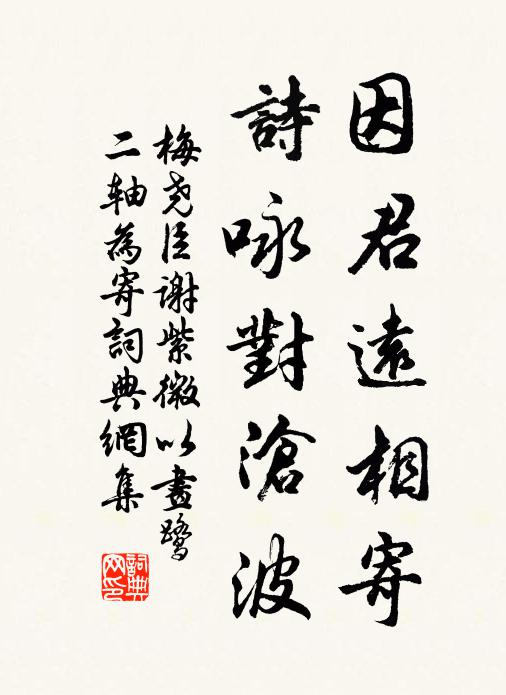 因君遠相寄
詩咏對滄波
梅尧臣謝紫微以畫鷺
二轴為寄詞典網集
詞典
网印